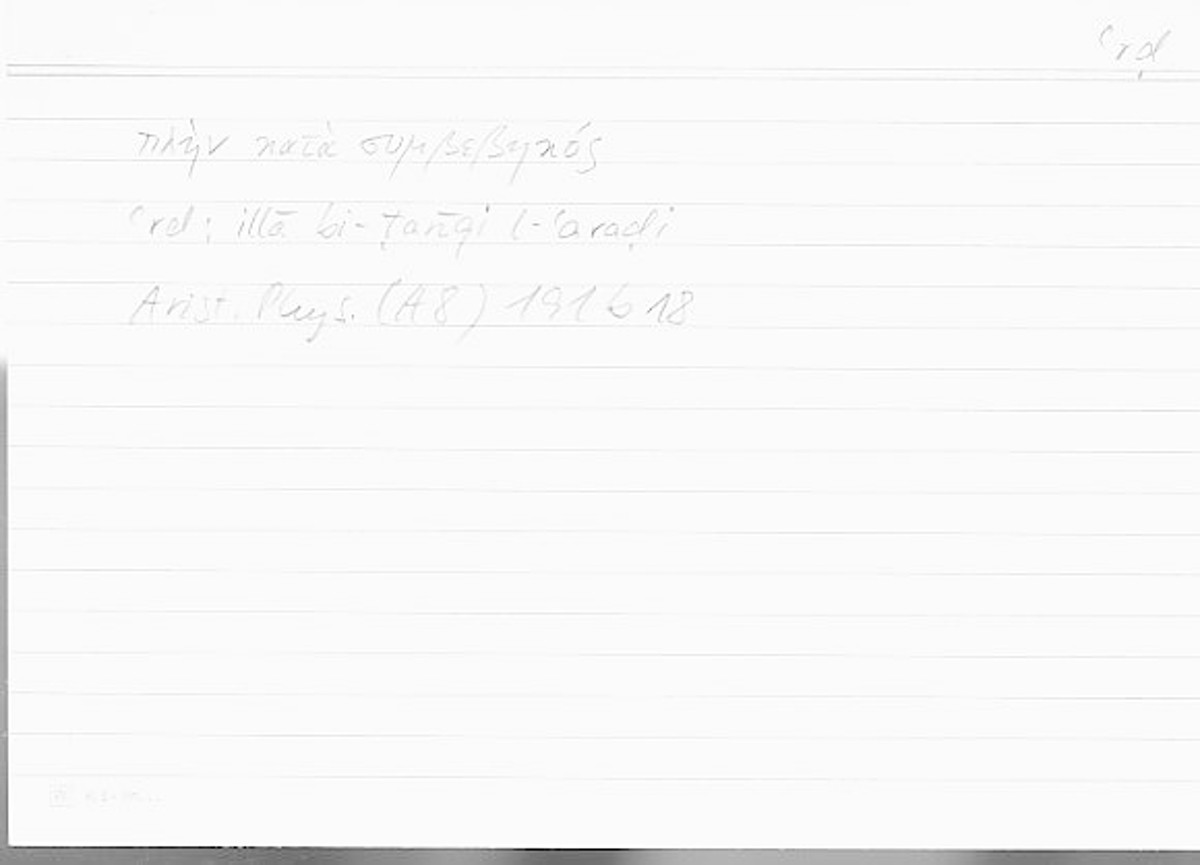 ʿrḍ
πλὴν κατὰ συμβεβηκός
ʿrd: illā bi-ṭarīqi l-ʿaraḍi
Arist. Phys. (A8) 191 b 18